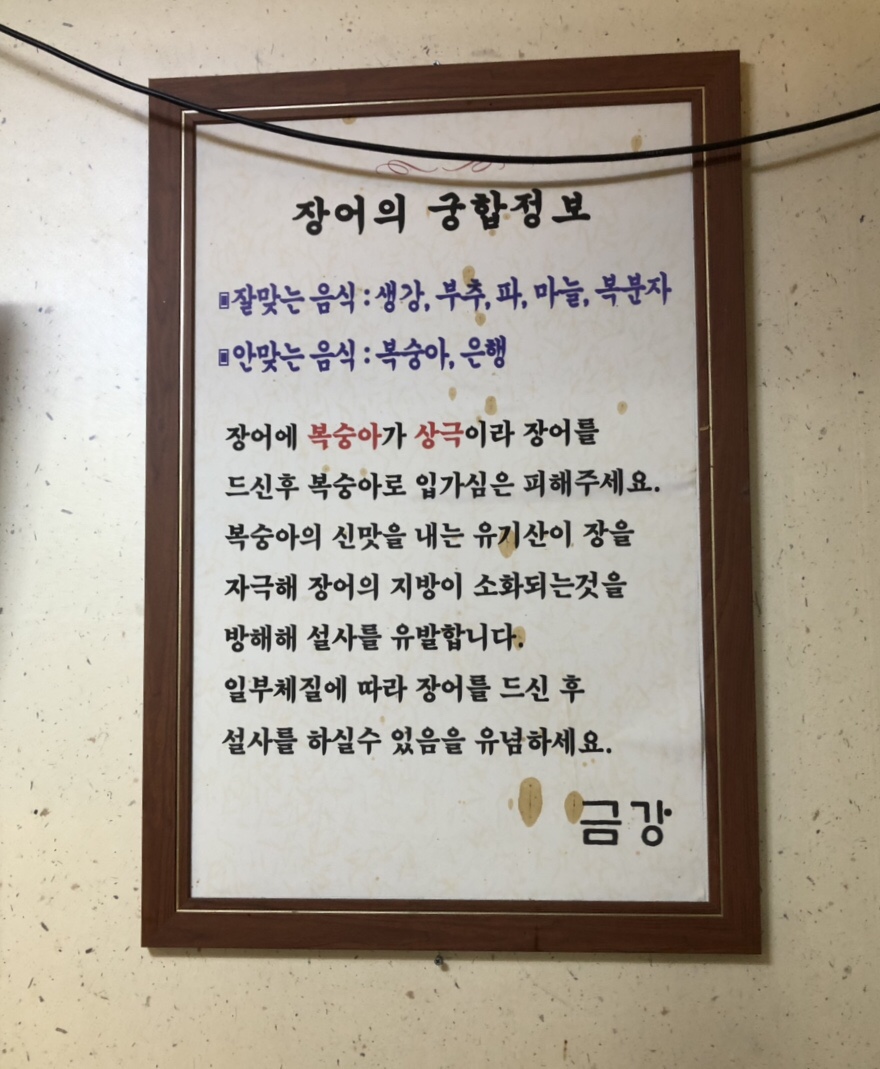 장어의 궁합정보
▣잘맞는 음식 : 생강, 부추, 파, 마늘, 복분자
▣안맞는 음식 : 복숭아, 은행
장어에 복숭아가 상극이라 장어를
드신후 복숭아로 입가심은 피해주세요.
복숭아의 신맛을 내는 유기산이 장을
자극해 장어의 지방이 소화되는것을
방해해 설사를 유발합니다.
일부체질에 따라 장어를 드신 후
설사를 하실수 있음을 유념하세요.
금강